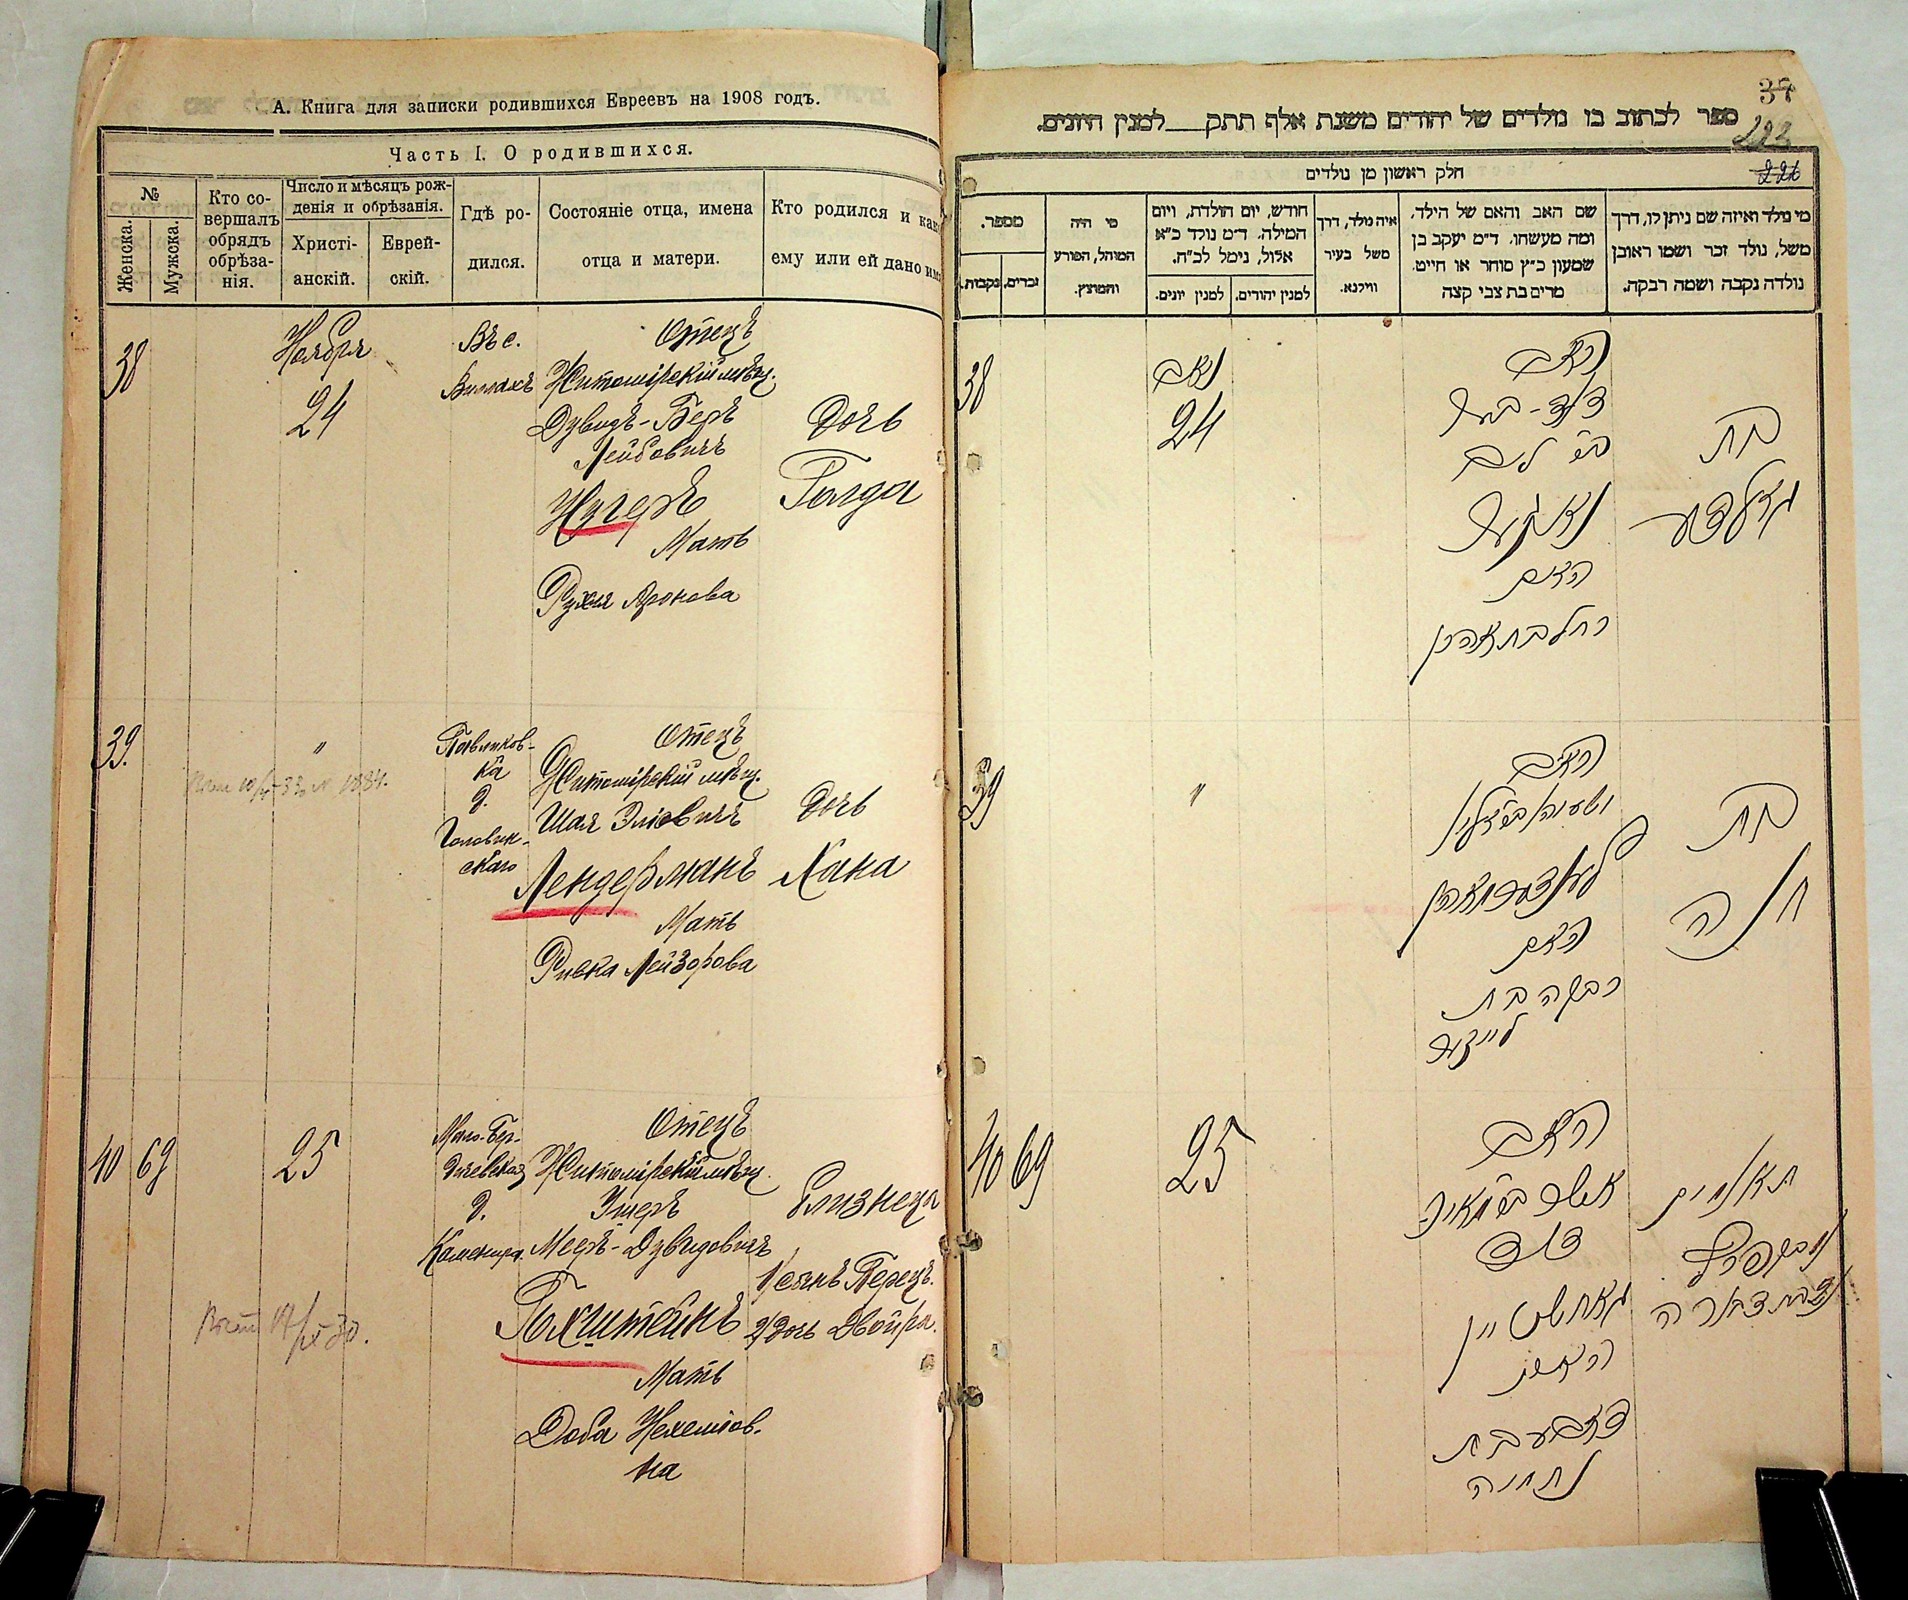 А. Книга для записки родившихся Евреевъ на 1908 годъ.
Часть I. О родившихся.
№
Женска.
Мужска.
Кто со-
вершалъ
обрядъ
обрѣза-
нія.
Число и мѣсяцъ рож-
денія и обрѣзанія.
Христі-
анскій.
Еврей-
скій.
Гдѣ ро-
дился.
Состояніе отца, имена
отца и матери.
Кто родился и как
ему или ей дано им
38
Ноября
24
Въ с.
Отецъ
Житомірскій мѣщ.
Дувидъ-Беръ
Лейбовичъ
Нугеръ
Мать
Рухля Аронова
Дочь
Голда
39.
"
Павликов-
ка
д.
Головин-
скаго
Отецъ
Житомірскій мѣщ.
Шая Эліовичъ
Лендерманъ
Мать
Ривка Лейзорова
Дочь
Хана
40 69
25
Мало-Бер-
дичевская
д.
Отецъ
Житомірскій мѣщ.
Ушеръ
Мееръ-Дувидовичъ
Бохштейнъ
Мать
Доба Нехемiов-
на
Близнецы
1 сынъ Перецъ.
2 дочь Двойра.
37
ספר לכתוב בו נולדים של יהודים משנת אלף תתק למנין היונים.
חלק ראשון מן נולדים
מספר.
זכרים.
נקבות.
מי היה
המוהל, הפורע
והמוצץ.
חודש, יום הולדת, ויום
המילה. ד"מ נולד כ"א
אלול, נימל לכ"ח.
למנין יונים.
למנין יהודים.
איה נולד, דרך
משל בעיר
ווילנא.
שם האב והאם של הילד,
ומה מעשהו. ד"מ יעקב בן
שמעון כ"ץ סוחר או חייט.
מרים בת צבי קצה
מי נולד ואיזה שם ניתן לו, דרך
משל, נולד זכר ושמו ראובן
נולדה נקבה ושמה רבקה.
38
נאב
24
האב
דוד-בער
בר ליב
נאגער
האם
רחל בת אהרן
בת
גאלדע
39
"
האב
לענדערמאן
האם
רבקה בת
לייזער
בת
חנה
40 69
25
האב
אשר בר מאיר
דוד
באחשטיין
האם
דאבע בת
נחמיה
תאומים